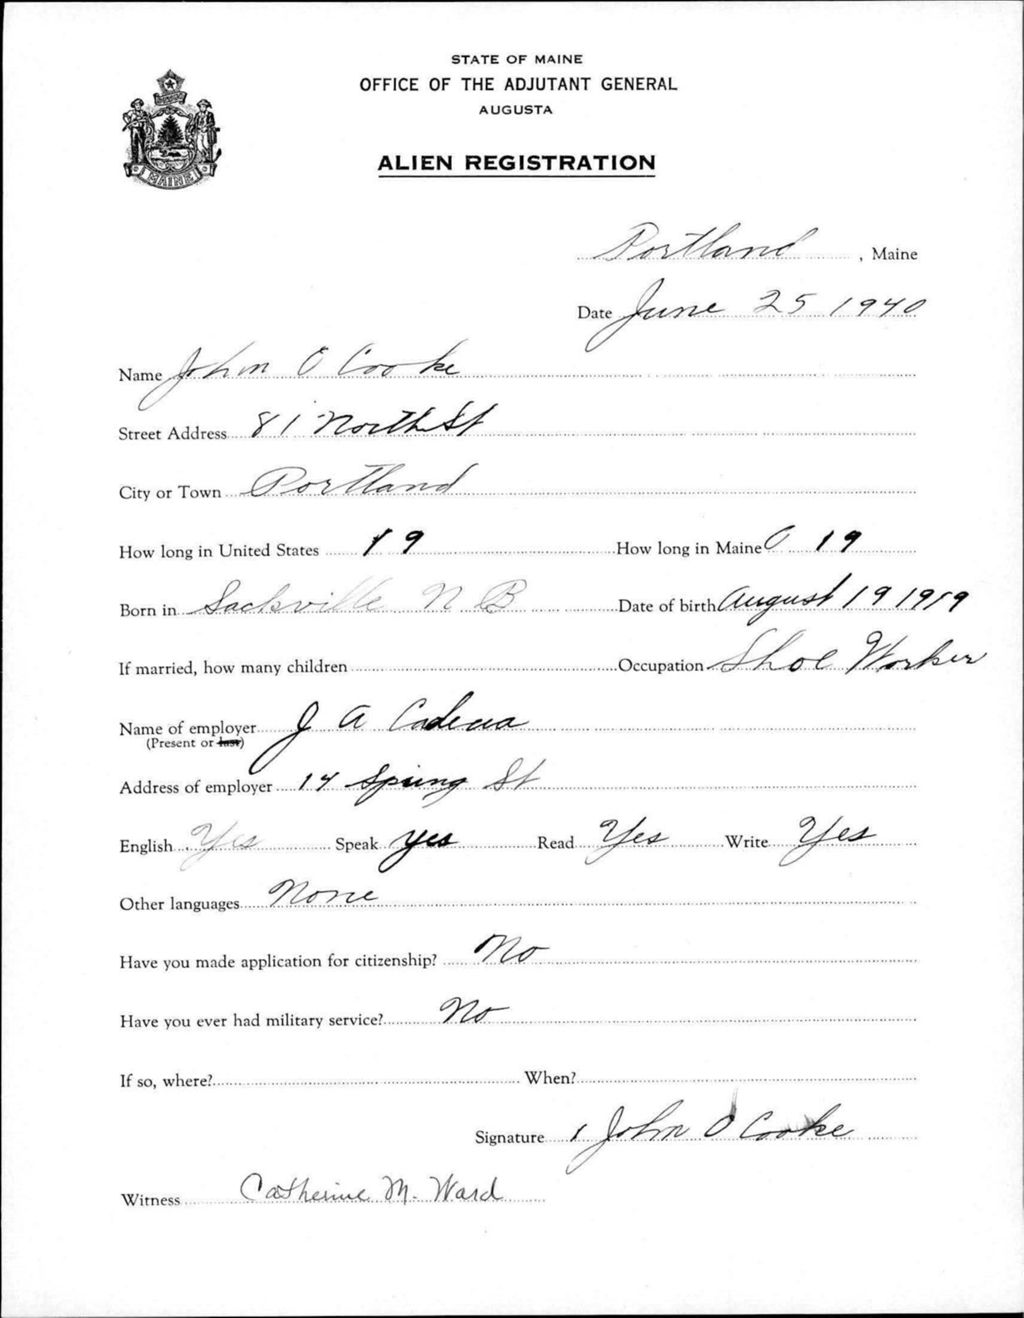 STATE OF MAINE
OFFICE OF THE ADJUTANT GENERAL
AUGUSTA
ALIEN REGISTRATION
MAINE
Portland, Maine
Date June 25 1940
Name John O Cooke
Street Address 81 North St
City or Town Portland
How long in United States 19 How long in Maine 19
Born in Sackville N B Date of birth August 19 1919
If married, how many children Occupation Shoe Worker
Name of employer J A
(Present or last)
Address of employer 14 Spring St
English Yes Speak yes Read Yes Write Yes
Other languages None
Have you made application for citizenship? No
Have you ever had military service? No
If so, where? When?
Signature John O Cooke
Witness Catherine M. Ward